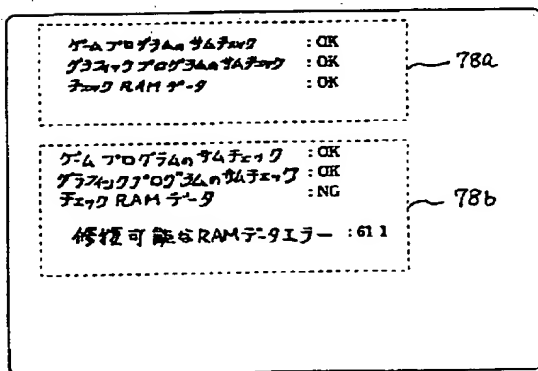 ゲームプログラムのサムチェック :OK
グラフィックプログラムのサムチェック :OK
チェックRAMデータ :OK
78a
ゲームプログラムのサムチェック :OK
グラフィックプログラムのサムチェック :OK
チェックRAMデータ :NG
修復可能なRAMデータエラー :611
78b